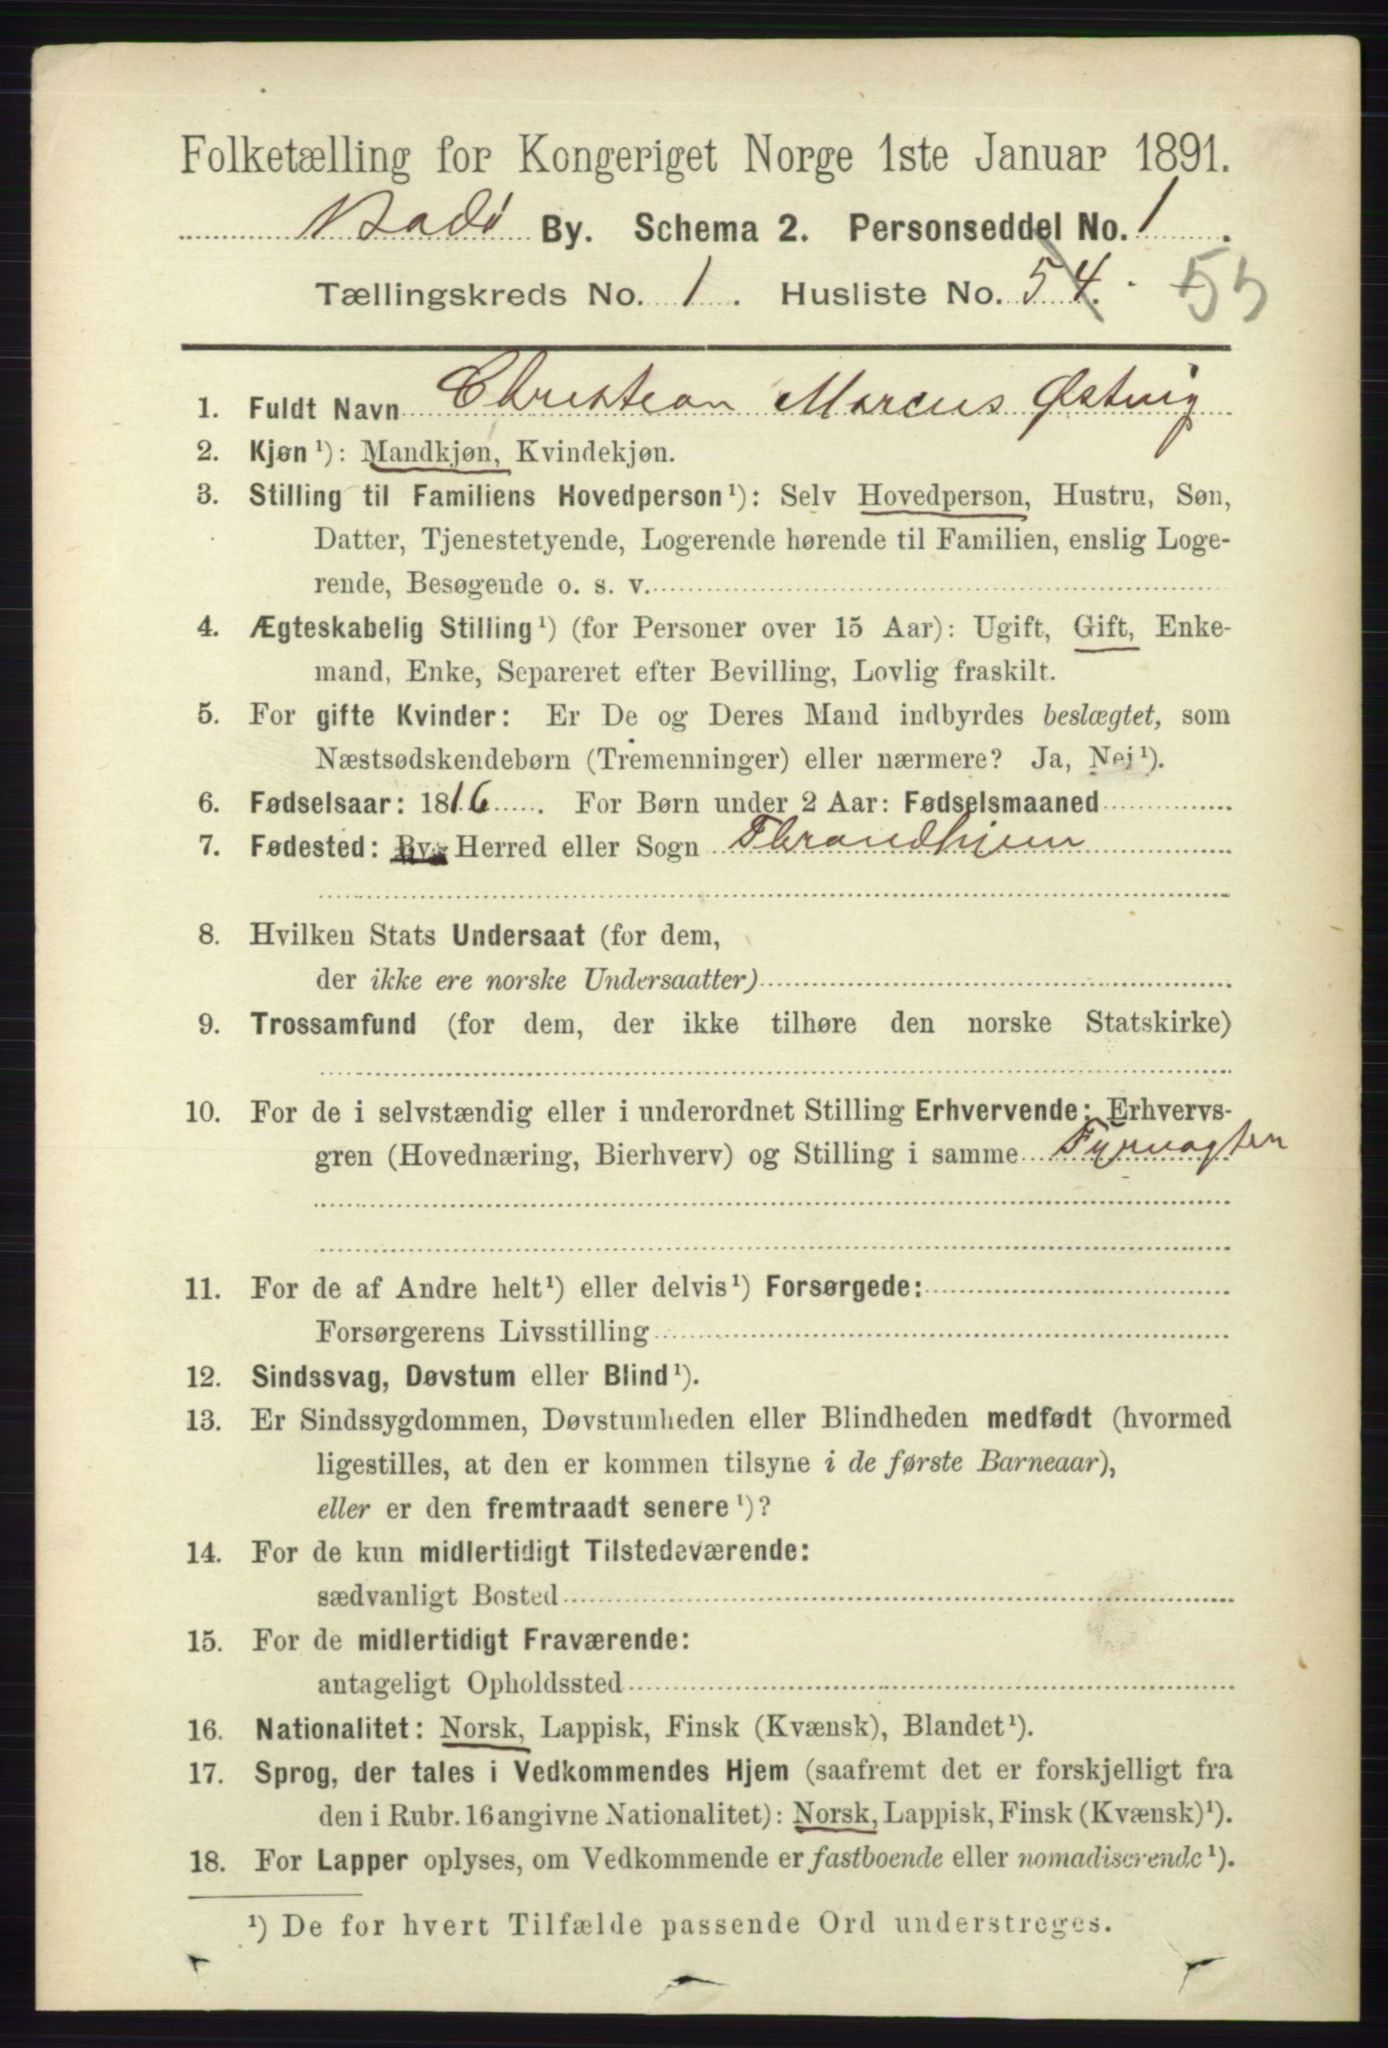 Folketælling for Kongeriget Norge 1ste Januar 1891.
Bodö By. Schema 2. Personseddel No. 1.
Tællingskreds No. 1. Husliste No. 54. 55
1. Fuldt Navn Christian Marcus Østvig
2. Kjøn¹): Mandkjøn, Kvindekjøn.
3. Stilling til Familiens Hovedperson¹): Selv Hovedperson, Hustru, Søn,
Datter, Tjenestetyende, Logerende hørende til Familien, enslig Loge-
rende, Besøgende o. s. v.
4. Ægteskabelig Stilling¹) (for Personer over 15 Aar): Ugift, Gift, Enke-
mand, Enke, Separeret efter Bevilling, Lovlig fraskilt.
5. For gifte Kvinder: Er De og Deres Mand indbyrdes beslægtet, som
Næstsødskendebørn (Tremenninger) eller nærmere? Ja, Nej¹).
6. Fødselsaar: 1816. For Børn under 2 Aar: Fødselsmaaned
7. Fødested: By, Herred eller Sogn Thrandhjem
8. Hvilken Stats Undersaat (for dem,
der ikke ere norske Undersaatter)
9. Trossamfund (for dem, der ikke tilhøre den norske Statskirke)
10. For de i selvstændig eller i underordnet Stilling Erhvervende: Erhvervs-
gren (Hovednæring, Bierhverv) og Stilling i samme Fyrvogter
11. For de af Andre helt¹) eller delvis¹) Forsørgede:
Forsørgerens Livsstilling
12. Sindssvag, Døvstum eller Blind¹).
13. Er Sindssygdommen, Døvstumheden eller Blindheden medfødt (hvormed
ligestilles, at den er kommen tilsyne i de første Barneaar),
eller er den fremtraadt senere¹)?
14. For de kun midlertidigt Tilstedeværende:
sædvanligt Bosted
15. For de midlertidigt Fraværende:
antageligt Opholdssted
16. Nationalitet: Norsk, Lappisk, Finsk (Kvænsk), Blandet¹).
17. Sprog, der tales i Vedkommendes Hjem (saafremt det er forskjelligt fra
den i Rubr. 16 angivne Nationalitet): Norsk, Lappisk, Finsk (Kvænsk)¹).
18. For Lapper oplyses, om Vedkommende er fastboende eller nomadiserende¹).
¹) De for hvert Tilfælde passende Ord understreges.